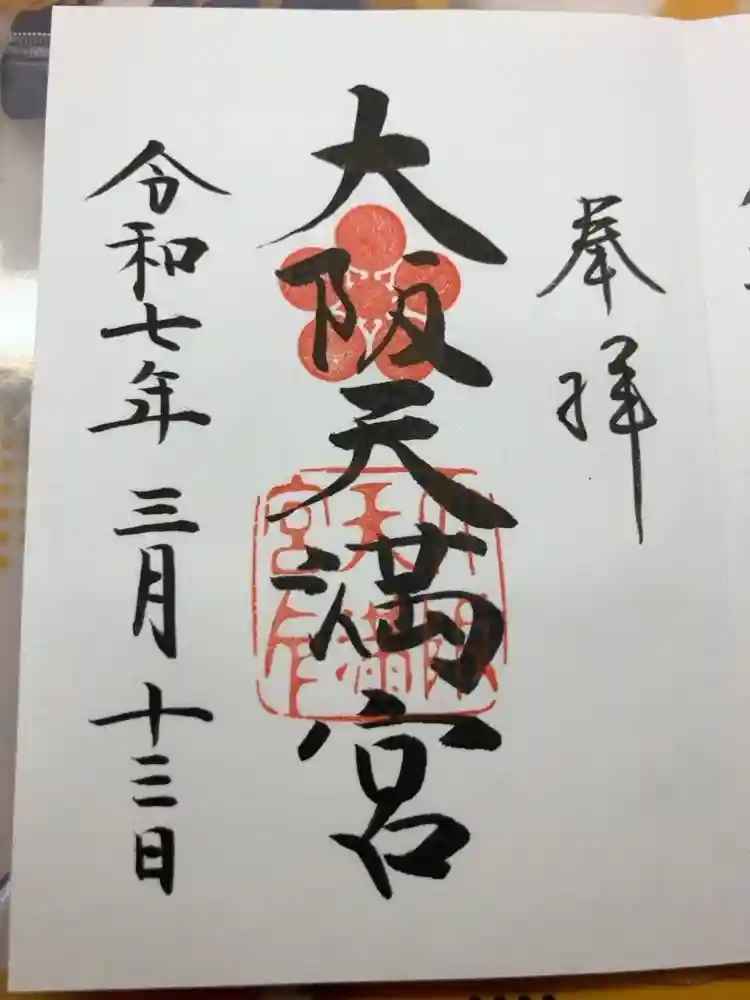 奉拝
大阪天満宮
令和七年 三月 十三日